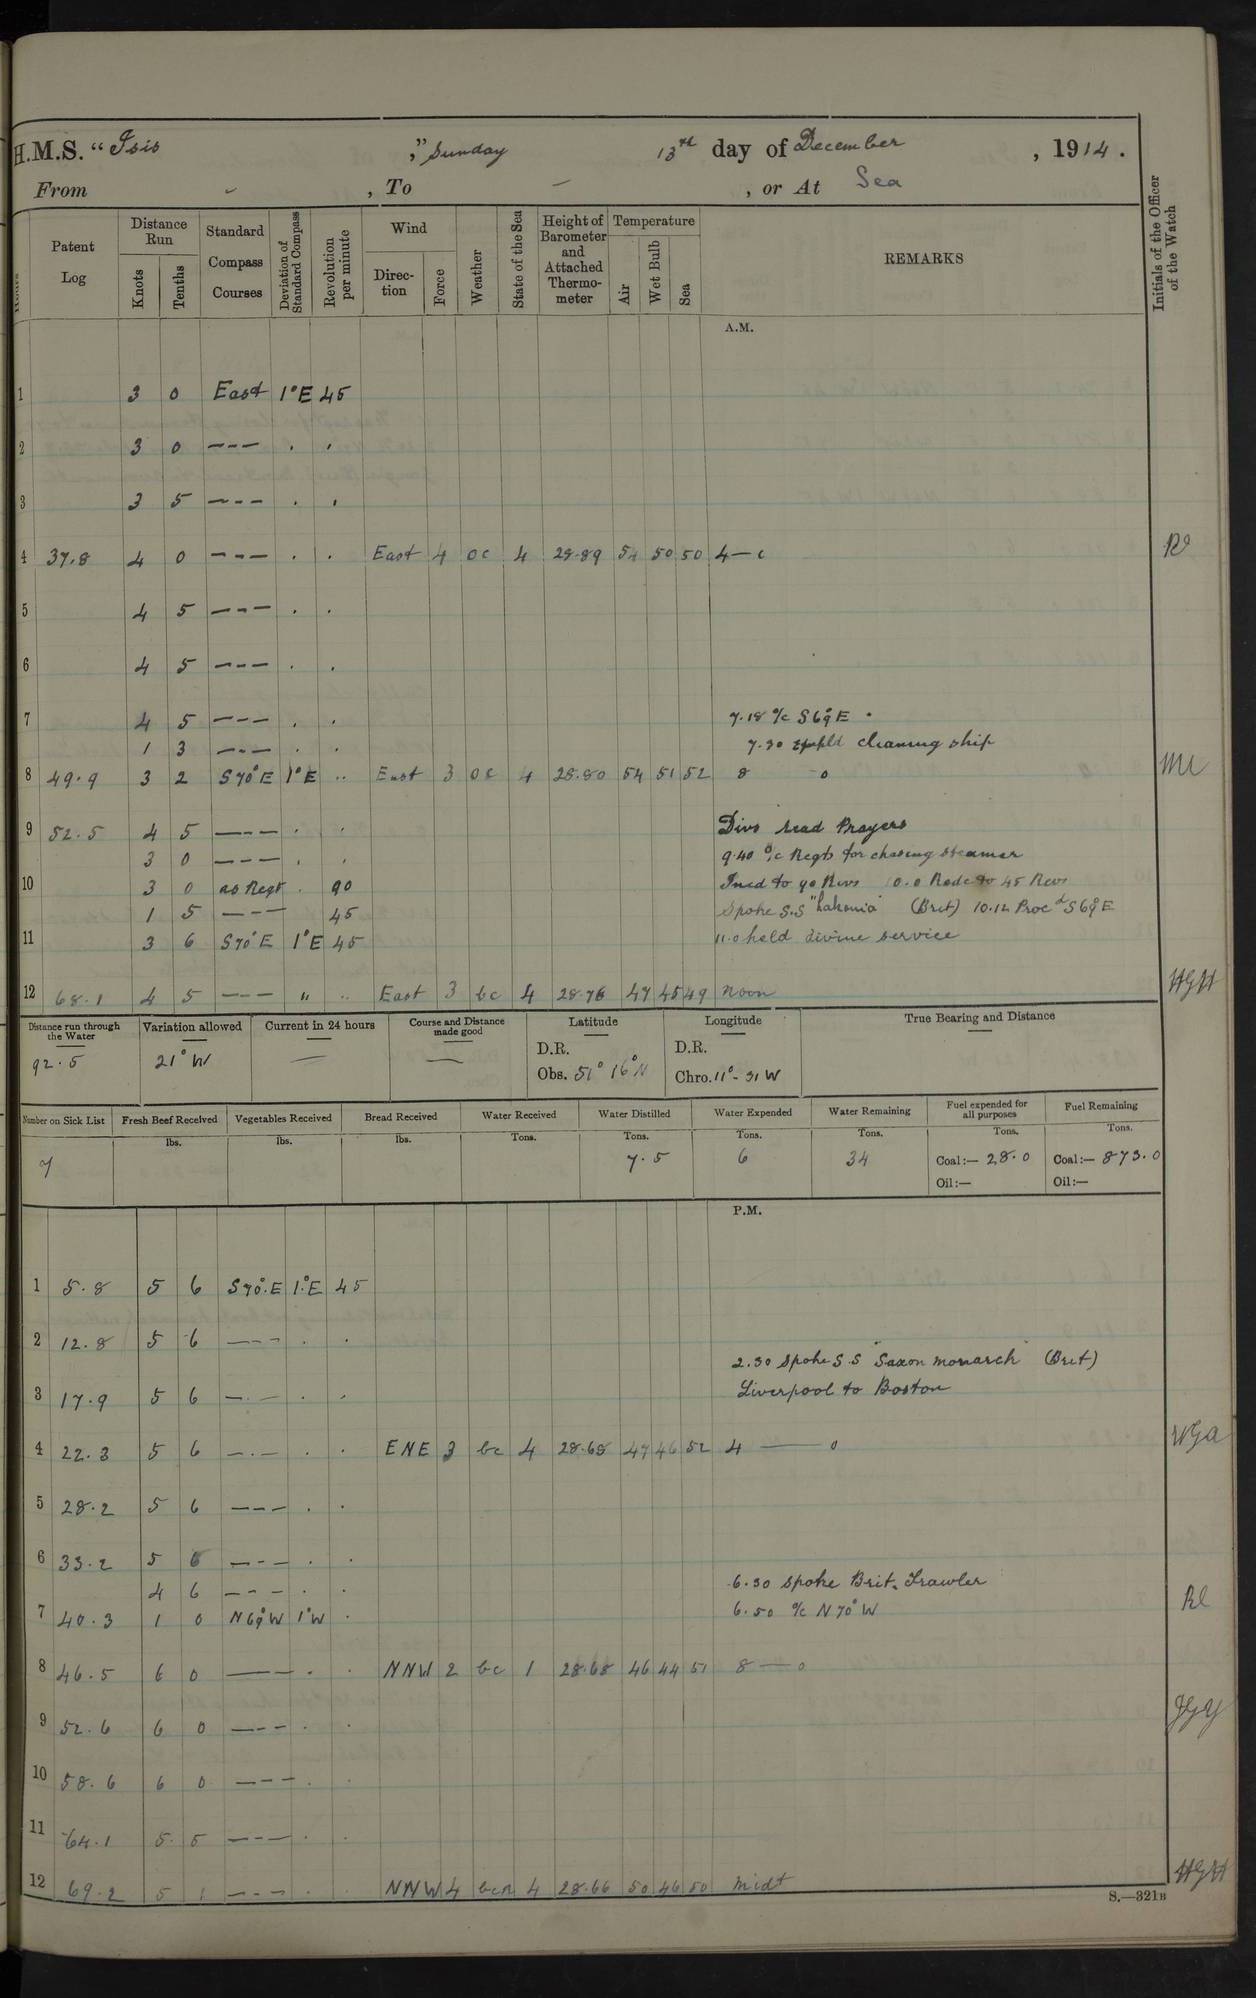 H.M.S. “Isis ,” Sunday 13th day of December , 1914 .
From - , To - , or At Sea
Patent Log Distance Run Knots Tenths Standard Compass Courses Deviation of Standard Compass Revolution per minute Wind Direction Force Weather State of the Sea Height of Barometer and Attached Thermometer Temperature Air Wet Bulb Sea REMARKS Initials of the Officer of the Watch
A.M.
1 3 0 East 1°E 45
2 3 0 --- . .
3 3 5 --- . .
4 37.8 4 0 --- . . East 4 oc 4 28.89 54 50 50 4 —
5 4 5 --- . .
6 4 5 --- . .
7 4 5 --- . . 7.18 a/c S69°E .
1 3 --- . . 7.30 cleaning ship
8 49.9 3 2 S70°E 1°E .. East 3 oc 4 28.80 54 51 52 8 o
9 52.5 4 5 --- . . Divs read Prayers
3 0 --- . . 9.40 a/c Reqts for chasing steamer
10 3 0 as Reqt . 90 Incd to 90 Revs 10.0 Redc to 45 Revs
1 5 --- 45 Spoke S.S (Brit) 10.12 Procd S69°E
11 3 6 S70°E 1°E 45 11.0 held divine service
12 68.1 4 5 --- " .. East 3 bc 4 28.76 47 45 49 Noon HGH
Distance run through the Water Variation allowed Current in 24 hours Course and Distance made good Latitude Longitude True Bearing and Distance
92.5 21° W — — D.R. D.R.
Obs. 51° 16° N Chro. 11° - 31 W
Number on Sick List Fresh Beef Received Vegetables Received Bread Received Water Received Water Distilled Water Expended Water Remaining Fuel expended for all purposes Fuel Remaining
lbs. lbs. lbs. Tons. Tons. Tons. Tons. Tons. Tons.
7 7.5 6 34 Coal:— 28.0 Coal:— 873.0
Oil:— Oil:—
P.M.
1 5.8 5 6 S70°.E 1°.E 45
2 12.8 5 6 --- . .
2.30 Spoke S.S "Saxon monarch" (Brit)
3 17.9 5 6 --- . . Liverpool to Boston
4 22.3 5 6 --- . . ENE 3 bc 4 28.68 47 46 52 4 — o WGA
5 28.2 5 6 --- . .
6 33.2 5 6 --- . .
4 6 --- . . 6.30 Spoke Brit. Trawler
7 40.3 1 0 N69°W 1°W . 6.50 a/c N70°W
8 46.5 6 0 --- . . NNW 2 bc 1 28.68 46 44 51 8 — o
9 52.6 6 0 --- . .
10 58.6 6 0 --- . .
11 64.1 5 5 --- . .
12 69.2 5 1 --- . . NNW 4 4 28.66 50 46 50 Midt HGH
S.—321B